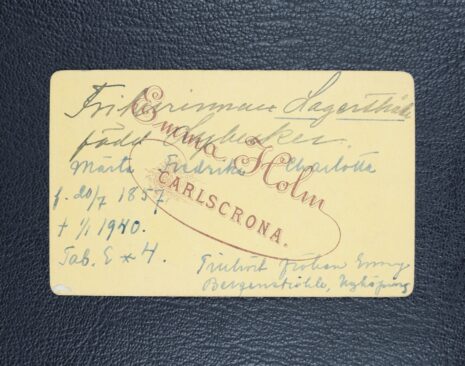 Friherrinnan Lagerstråle
född Sybecker.
Emma Holm
CARLSCRONA.
Märta Fredrika Charlotta
f. 20/7 1857
† 1/1 1940.
Tab. E * 4.
Friherr Johan Emmy
Bergenstråhle, Nyköping